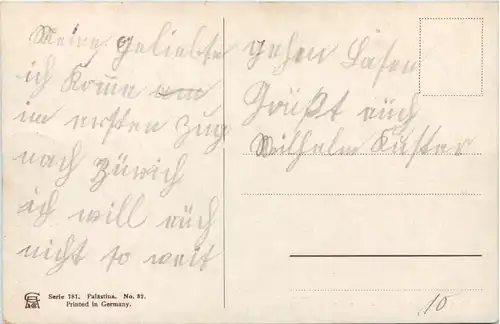 Meine geliebte
ich komme am
im ersten Zug
nach Zürich
ich will euch
nicht so weit
gehen lasen
Grüßt euch
Wilhelm Kuster
Serie 781. Palästina. No. 82.
Printed in Germany.
10